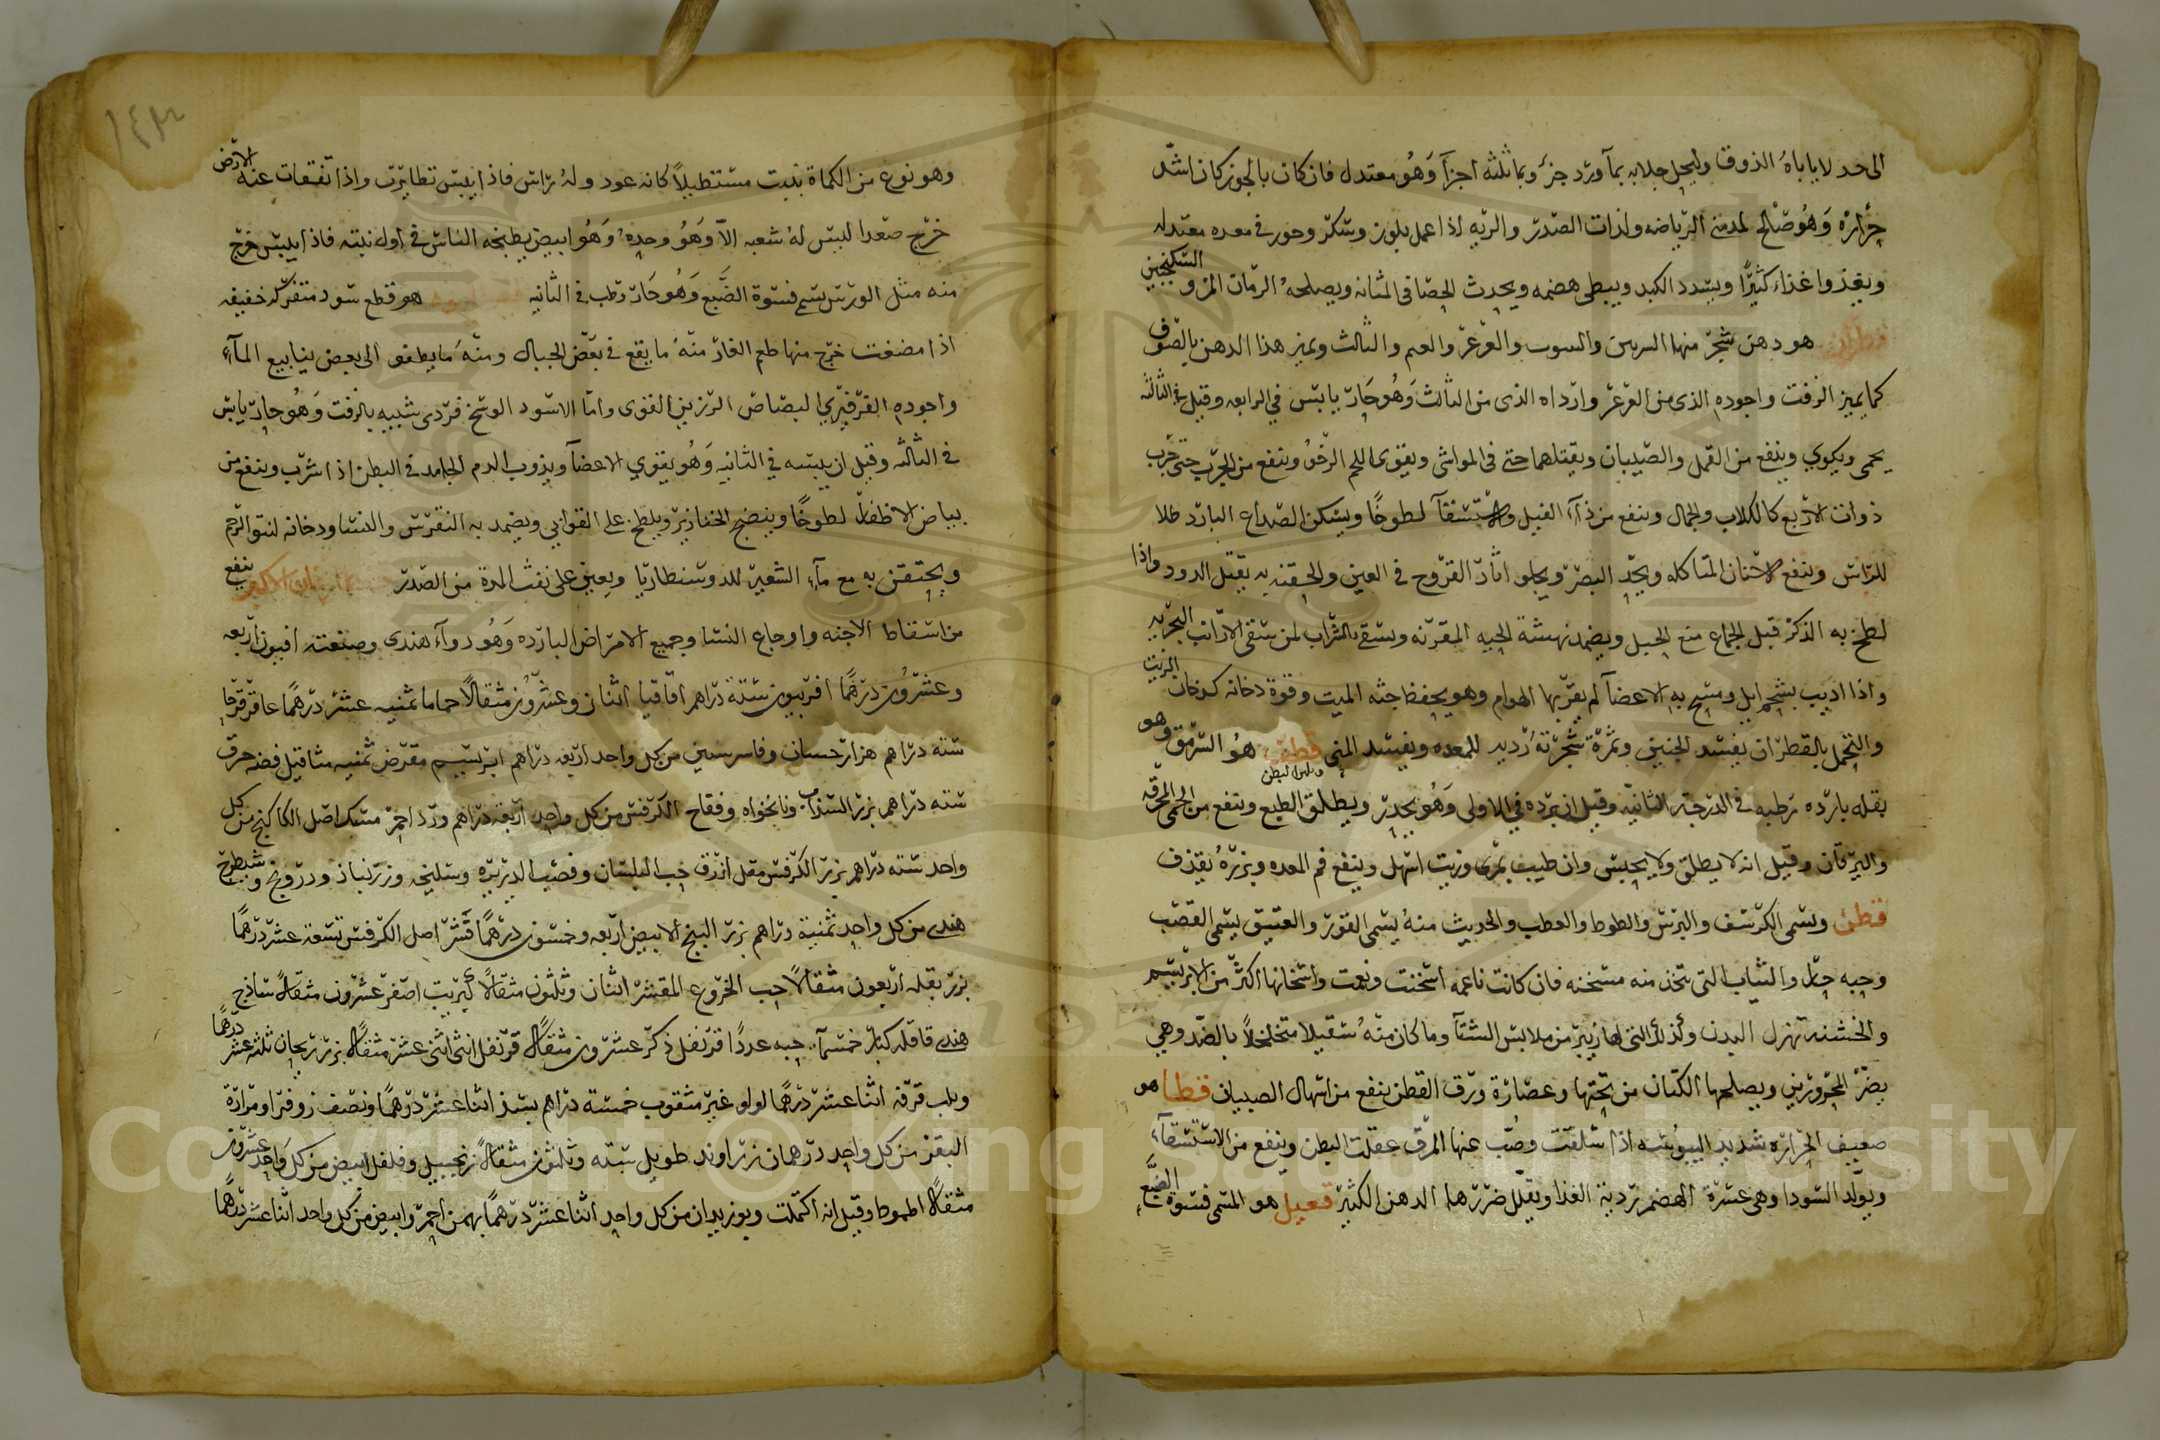 الى حد لا ياباه الذوق وليحل جلابه بمآ ورد جزء وبما ثلثه اجزآ وهو معتدل فان كان بالجوز كان اشد
حرارة وهو صالح لمدمني الرياضه ولذات الصدر والريه اذا عمل بلوز وسكر وحور في معده معتدله
ويغذوا غذاء كثيرًا ويسدد الكبد ويبطى هضمه ويحدث الحصا فى المثانه ويصلحه الرمان المز والسكنجبين
قطران هو دهن شجر منها السربين والعرعر والعتم والثالث ويميز هذا الدهن بالصوف
كما يميز الزفت واجوده الذى من العرعر وارداه الذى من الثالث وهو حار يابس في الرابعه وقيل في الثالثه
يحمى ويكوي وينفع من القمل والصيبان ويقتلهما حتى فى المواشى ويقوى اللحم الرخو وينفع من الجرب حتى جرب
ذوات الاربع كالكلاب والجمال وينفع من دآء الفيل والاستسقآ لطوخًا ويسكن الصداع البارد طلا
للراس وينفع الاسنان المتاكله ويحد البصر ويجلو اثار القروح في العين والحقنه به يقتل الدود واذا
لطخ به الذكر قبل الجماع منع الحبل ويضمد نهشة الحيه المقرنه ويسقى بالشراب لمن سقى الارانب البحريه
واذا اذيب بشحم ايل ومسح به الاعضآ لم يقربها الهوام وهو يحفظ جثه الميت وقوة دخانه كدخان الزيت
والتحمل بالقطران يفسد الجنين وثمرة شجرته رديه للمعده ويفسد المنى قطف هو السرمق وهو
ويلين البطن
بقله بارده رطبه في الدرجة الثانيه وقيل ان برده في الاولى وهو يحدر ويطلق الطبع وينفع من الحمى المحرقه
واليرقان وقيل انه لا يطلق ولا يحبس وان طيب بمرى وزيت اسهل وينفع فم المعده وبزره يقذف
قطن ويسمى الكرسف والبرس والطوط والعطب والحديث منه يسمى القور والعتيق يسمى القصب
وحبه حار والثياب التى تتخذ منه مسخنه فان كانت ناعمه اسخنت ونعمت واسخانها اكثر من الابريسم
والخشنه تهزل البدن وكذلك التى لها زيير من ملابس الشتآ وما كان منه سقيلا متخلخلاً بالضد وهي
يضر المحرورين ويصلحها الكتان من تحتها وعصارة ورق القطن ينفع من اسهال الصبيان قطا هو
ضعيف الحراره شديد اليبوسه اذا سلقت وصب عنها المرق عقلت البطن وينفع من الاستسقآء
ويولد السودا وهى عسرة الهضم ردية الغذا ويقلل ضررها الدهن الكثير قعبل هو المسمى فسوة الضبع
وهو نوع من الكماة ينبت مستطيلاً كانه عود وله راس فاذا يبس تطايرت واذا تفقات عنه الارض
خرج صعدا ليس له شعبه الا وهو وحده وهو ابيض يطبخه الناس فى اول نبته فاذا يبس خرج
منه مثل الورس يسمى فسوة الضبع وهو حار رطب فى الثانيه هو قطع سود متفركه خفيفه
اذا مضغت خرج منها طعم القار منه ما يقع في بعض الجبال ومنه ما يطفو الى بعض ينابيع المآء
واجوده الفرفيري البصاص الرزين القوى واما الاسود الوسخ فردى شبيه بالزفت وهو حار يابس
فى الثالثه وقيل ان يبسه في الثانيه وهو يقوي الاعضآ ويذوب الدم الجامد فى البطن اذا شرب وينفع من
بياض الاظفار لطوخًا وينضج الخنازير ويلطخ على القوابي ويضمد به النقرس والنسا ودخانه لنتو الرحم
ويحتقن به مع مآء الشعير للدوسنطاريا ويعين على نفث المدة من الصدر الاكبر ينفع
من اسقاط الاجنه واوجاع النسا وجميع الامراض البارده وهو دوآء هندى وصنعته افيون اربعه
وعشرون درهمًا افربيون ستة دراهم اقاقيا اثنان وعشرون مثقالاً حماما ثمنيه عشر درهمًا عاقرقرحا
سته دراهم هزار جسان وفاسرسين من كل واحد اربعه دراهم ابريسم مقرض ثمنيه مثاقيل فضه حرق
سته دراهم بزر السذاب ونانخواه وفقاح الكرفس من كل واحد اربعه دراهم ورد احمر مسك اصل الكاكنج من كل
واحد سته دراهم بزر الكرفس مقل ازرق حب البلسان وقصب الذريره وسليخه وزرنباد ودرونج وشيطرج
هندى من كل واحد ثمنية دراهم بزر البنج الابيض اربعه وخمسون درهمًا قشر اصل الكرفس تسعة عشر درهمًا
بزر بقله اربعون مثقالاً حب الخروع المقشر اثنان وثلثون مثقالاً كبريت اصفر عشرون مثقالاً ساذج
هندى قاقله كبار خمسمآئه حبه عددًا قرنفل ذكر عشرون مثقالاً قرنفل انثى اثنى عشر مثقالاً بزر ريحان ثلثه عشر درهمًا
ولب قرفه اثنا عشر درهمًا لولو غير مثقوب خمسة دراهم بسذ اثنا عشر درهمًا ونصف زوفرا ومرارة
البقر من كل واحد درهمان زراوند طويل سته وثلثون مثقالاً زنجبيل وفلفل ابيض من كل واحد عشرون
مثقالاً اطموط وقيل انه اكمكت وبوزيدان من كل واحد اثنا عشر درهمًا بهمن احمر وابيض من كل واحد اثنا عشر درهمًا
Copyright © King Saud University
1957